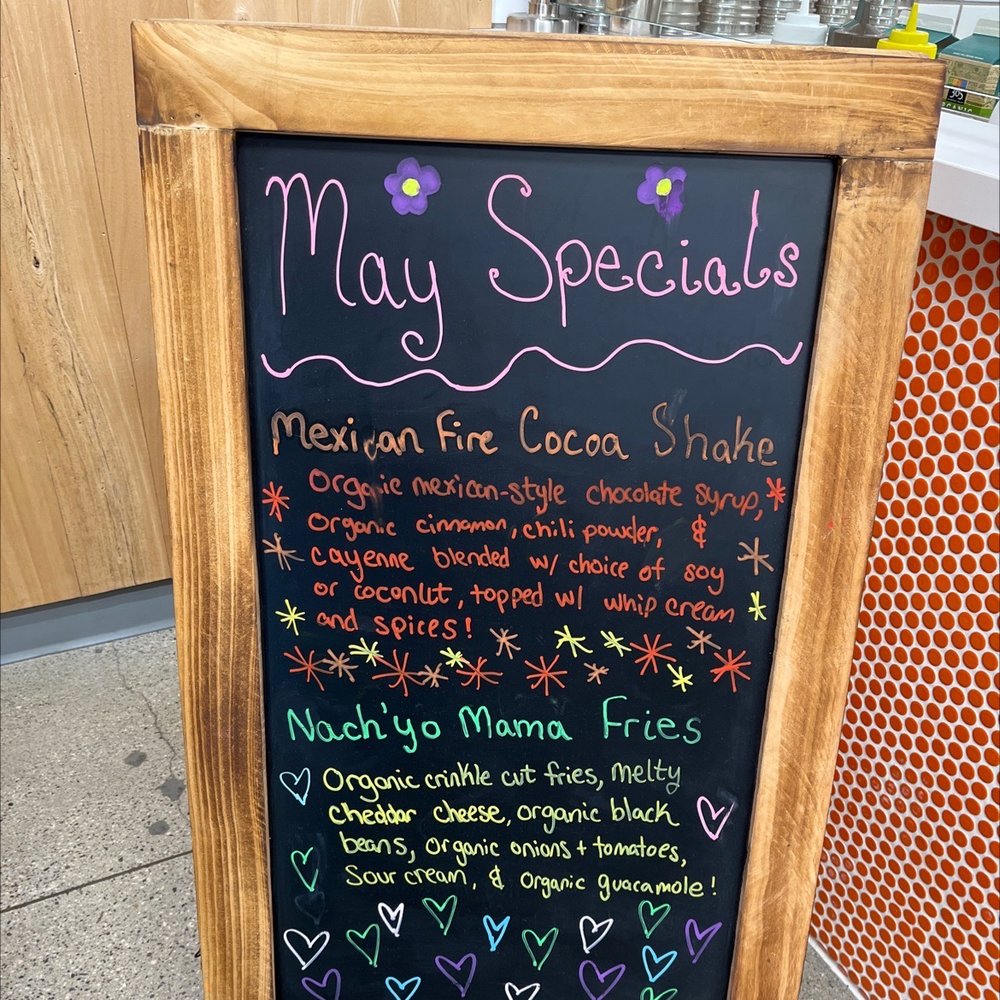 May Specials
Mexican Fire Cocoa Shake
Organic mexican-style chocolate syrup,
organic cinnamon, chili powder, &
cayenne blended w/ choice of soy
or coconut, topped w/ whip cream
and spices!
Nach'yo Mama Fries
Organic crinkle cut fries, melty
cheddar cheese, organic black
beans, organic onions + tomatoes,
sour cream, & organic guacamole!
365
ORGANIC